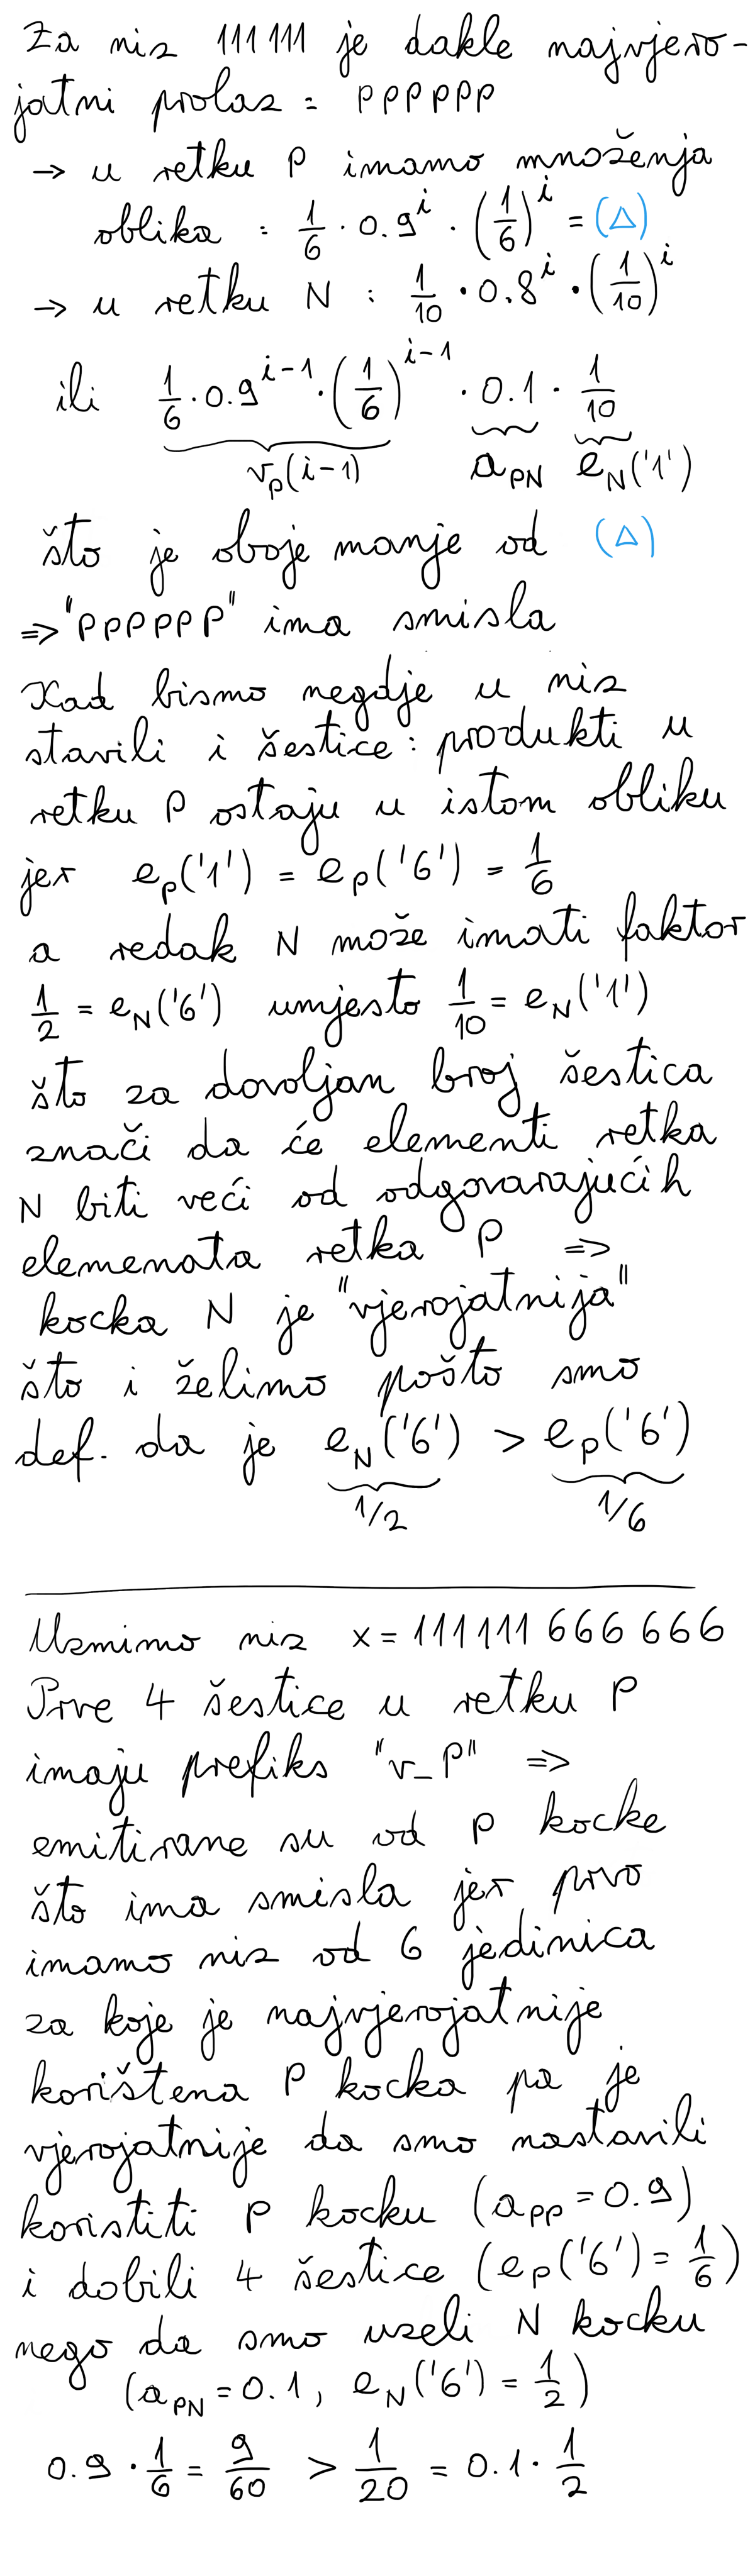 Za niz 111 111 je dakle najvjero-
jatni prolaz = PPPPPP
→ u retku P imamo množenja
oblika : 1/6 · 0.9^i · (1/6)^i = (Δ)
→ u retku N : 1/10 · 0.8^i · (1/10)^i
ili 1/6 · 0.9^(i-1) · (1/6)^(i-1) · 0.1 · 1/10
v_P(i-1) a_PN e_N('1')
što je oboje manje od (Δ)
⇒ "PPPPPP" ima smisla
Kad bismo negdje u niz
stavili i šestice: produkti u
retku P ostaju u istom obliku
jer e_P('1') = e_P('6') = 1/6
a redak N može imati faktor
1/2 = e_N('6') umjesto 1/10 = e_N('1')
što za dovoljan broj šestica
znači da će elementi retka
N biti veći od odgovarajućih
elemenata retka P ⇒
kocka N je "vjerojatnija"
što i želimo pošto smo
def. da je e_N('6') > e_P('6')
1/2 1/6
Uzmimo niz x = 111111 666 666
Prve 4 šestice u retku P
imaju prefiks "v_P" ⇒
emitirane su od P kocke
što ima smisla jer prvo
imamo niz od 6 jedinica
za koje je najvjerojatnije
korištena P kocka pa je
vjerojatnije da smo nastavili
koristiti P kocku (a_PP = 0.9)
i dobili 4 šestice (e_P('6') = 1/6)
nego da smo uzeli N kocku
(a_PN = 0.1, e_N('6') = 1/2)
0.9 · 1/6 = 9/60 > 1/20 = 0.1 · 1/2